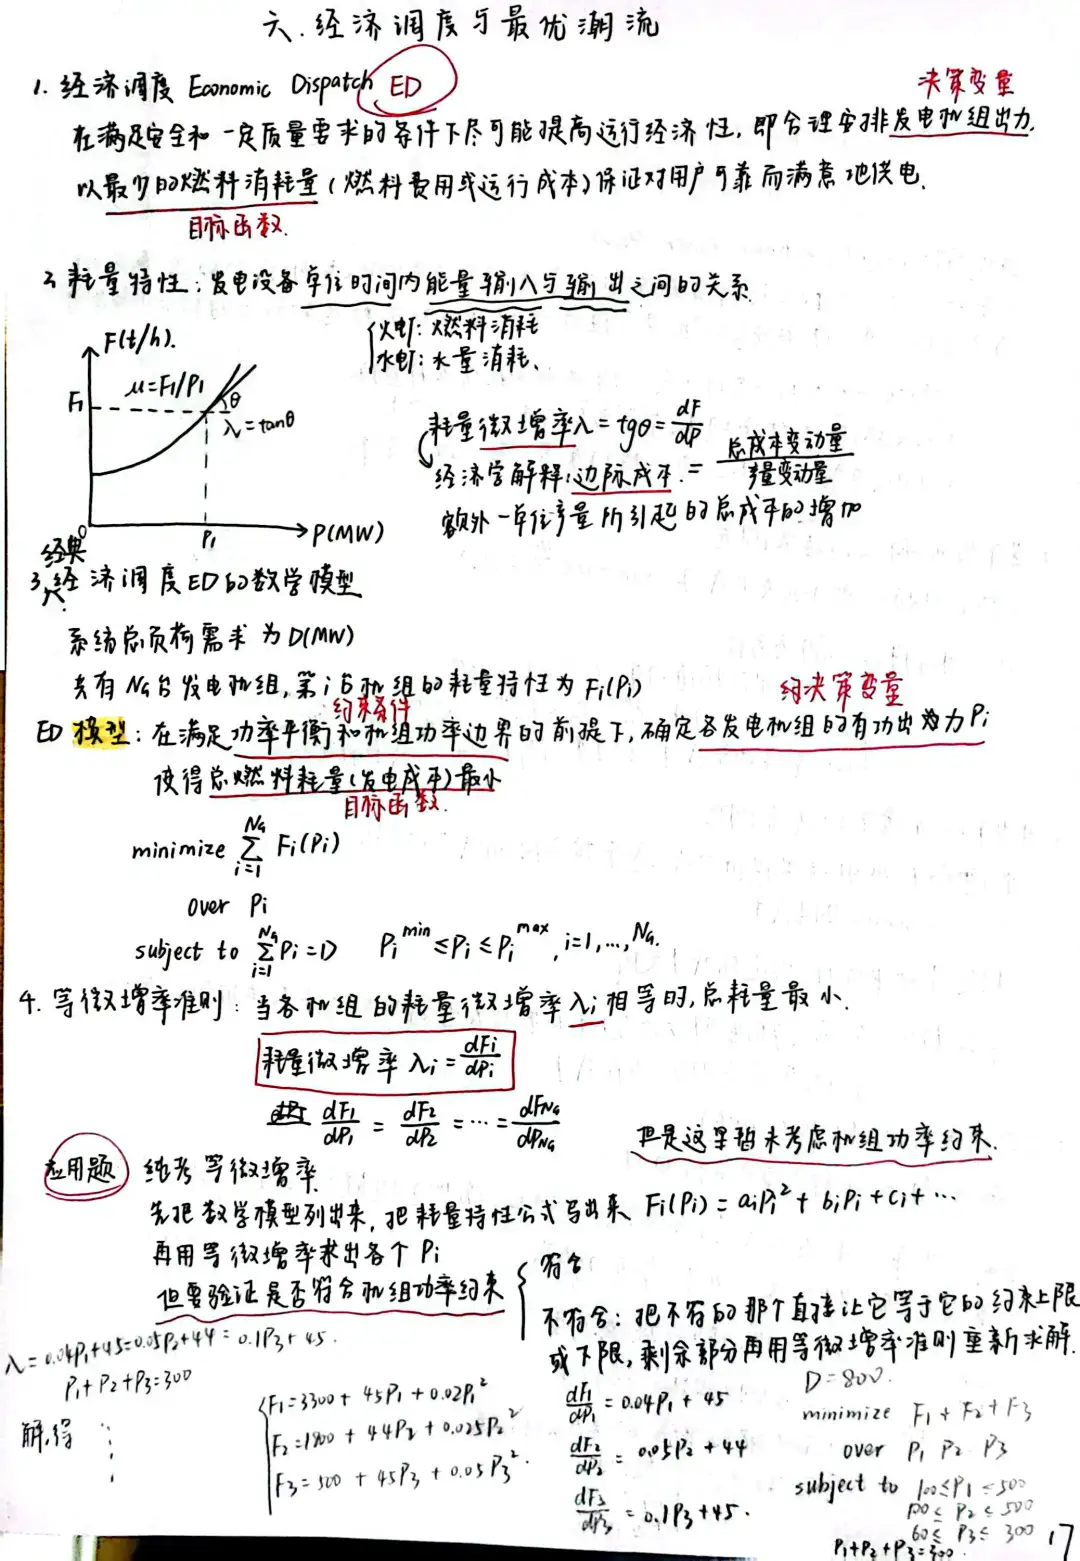 六.经济调度与最优潮流
1. 经济调度 Economic Dispatch ED
决策变量
在满足安全和一定质量要求的条件下尽可能提高运行经济性,即合理安排发电机组出力,
以最少的燃料消耗量(燃料费用或运行成本)保证对用户可靠而满意地供电.
目标函数.
2 耗量特性:发电设备单位时间内能量输入与输出之间的关系
火电:燃料消耗
水电:水量消耗、
F(t/h).
F1
μ=F1/P1
θ
λ=tanθ
0
P1
P(MW)
耗量微增率λ=tgθ=dF/dP
经济学解释:边际成本.=总成本变动量/产量变动量
额外一单位产量所引起的总成本的增加
经典
3.经济调度ED的数学模型
系统总负荷需求为D(MW)
共有NG台发电机组,第i台机组的耗量特性为Fi(Pi)
约束条件
约决策变量
ED模型:在满足功率平衡和机组功率边界的前提下,确定各发电机组的有功出力Pi
使得总燃料耗量(发电成本)最小
目标函数.
minimize ∑_{i=1}^{NG} Fi(Pi)
over Pi
subject to ∑_{i=1}^{NG} Pi=D Pi^min≤Pi≤Pi^max, i=1,...,NG.
4. 等微增率准则:当各机组的耗量微增率λi相等时,总耗量最小.
耗量微增率 λi=dFi/dPi
dF1/dP1 = dF2/dP2 = ... = dFNG/dPNG
但是这里暂未考虑机组功率约束.
应用题 纯考等微增率
先把数学模型列出来,把耗量特性公式写出来 Fi(Pi)=aiPi²+biPi+ci+...
再用等微增率求出各个Pi
但要验证是否符合机组功率约束
符合
不符合:把不符的那个直接让它等于它的约束上限
或下限,剩余部分再用等微增率准则重新求解.
λ=0.04P1+45=0.05P2+44=0.1P3+45.
P1+P2+P3=300
解得
F1=3300+45P1+0.02P1²
F2=1800+44P2+0.025P2²
F3=500+45P3+0.05P3².
dF1/dP1=0.04P1+45
dF2/dP2=0.05P2+44
dF3/dP3=0.1P3+45.
D=800.
minimize F1+F2+F3
over P1 P2 P3
subject to 100≤P1≤500
100≤P2≤500
60≤P3≤300
P1+P2+P3=300.
17